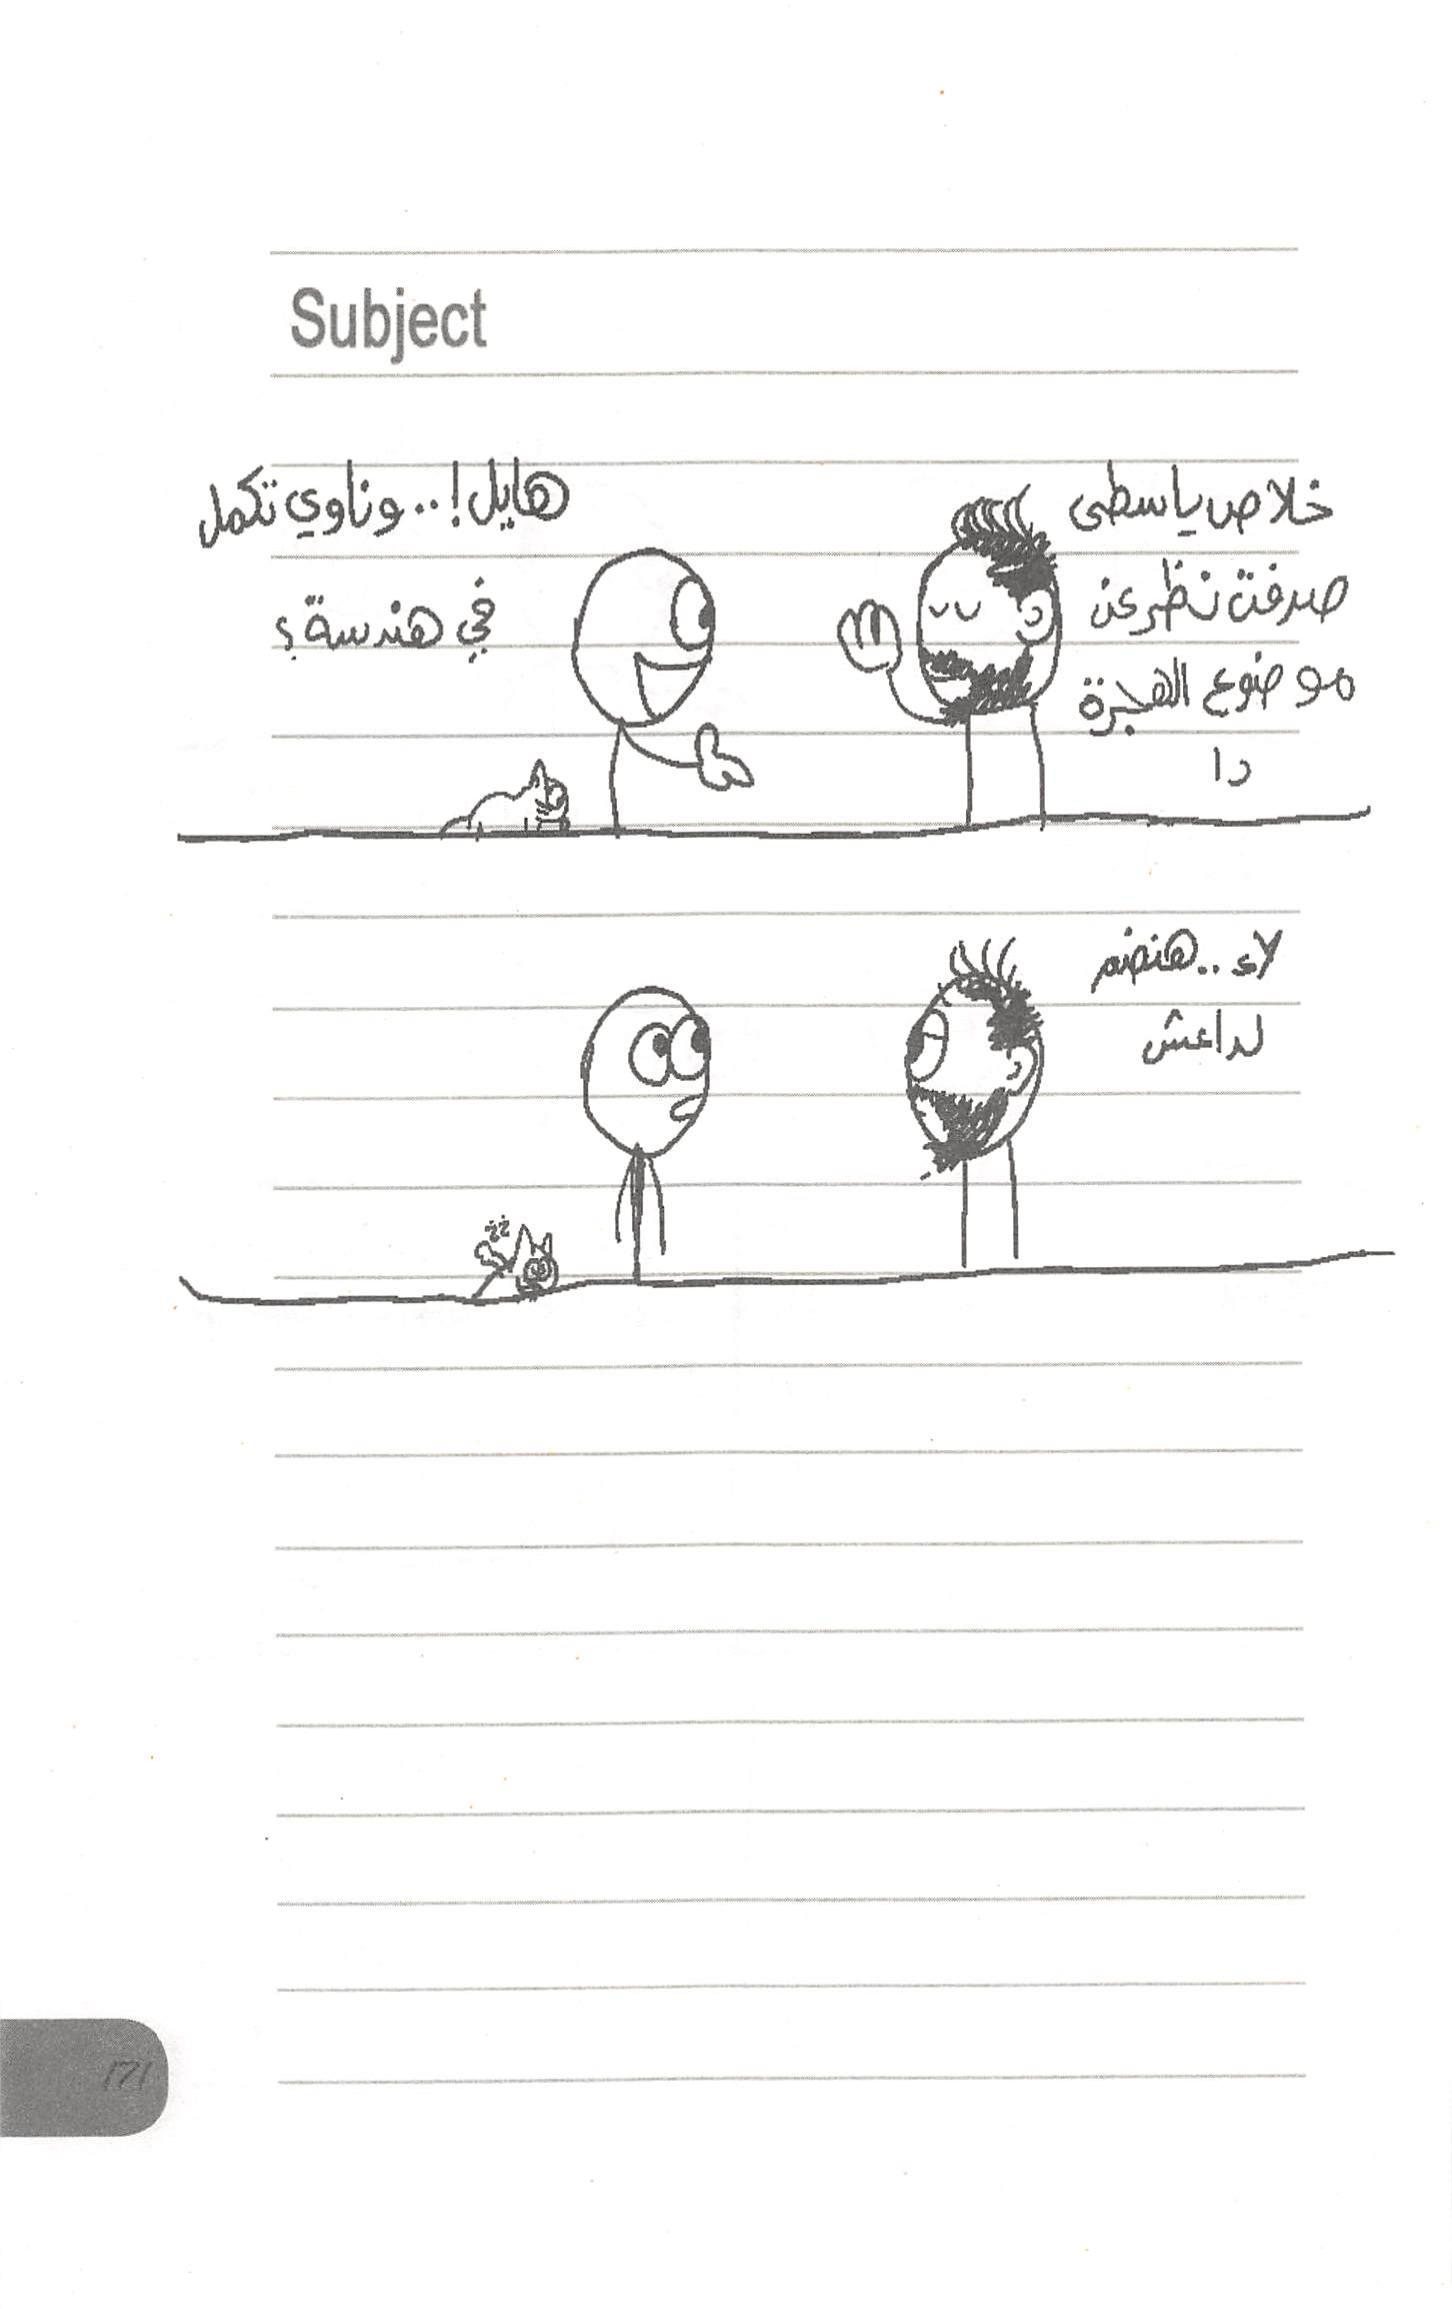 Subject
خلاص ياسطى
صرفت نظر عن
موضوع الهجرة
دا
هايل!.. وناوي تكمل
في هندسة؟
لاء.. هنضم
لداعش
171